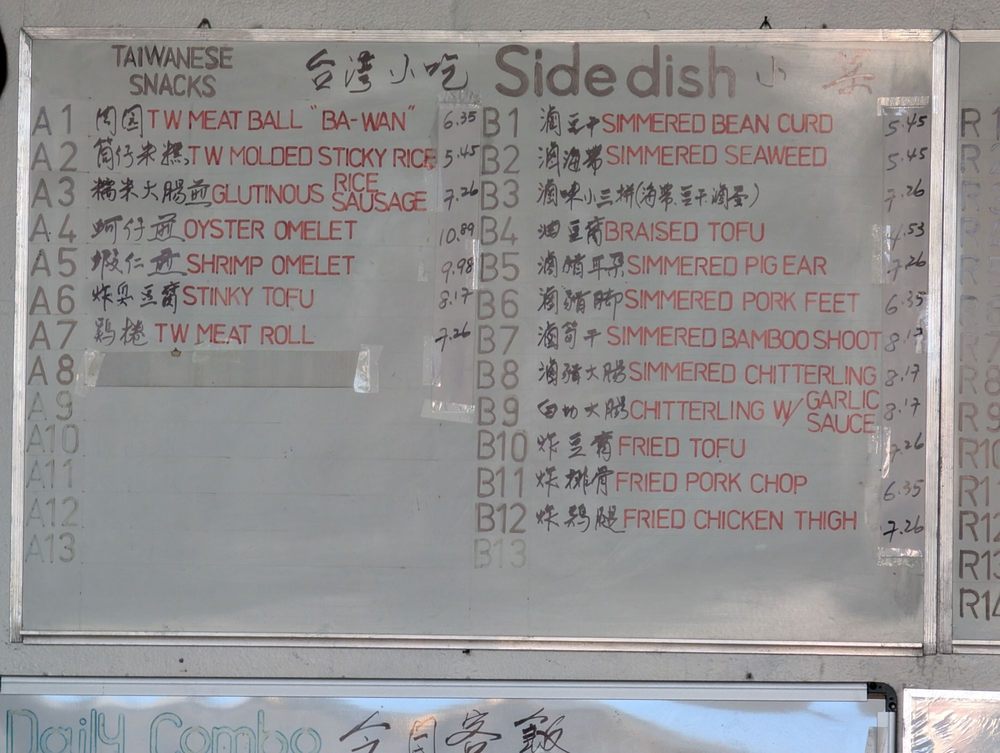 TAIWANESE SNACKS 台灣小吃
A1 肉圓 TW MEAT BALL "BA-WAN" 6.35
A2 筒仔米糕 TW MOLDED STICKY RICE 5.45
A3 糯米大腸煎 GLUTINOUS RICE SAUSAGE 7.26
A4 蚵仔煎 OYSTER OMELET 10.89
A5 蝦仁煎 SHRIMP OMELET 9.98
A6 炸臭豆腐 STINKY TOFU 8.17
A7 鶏捲 TW MEAT ROLL 7.26
A8
A9
A10
A11
A12
A13
Side dish 小菜
B1 滷豆干 SIMMERED BEAN CURD 5.45
B2 滷海帶 SIMMERED SEAWEED 5.45
B3 滷味小三拼(海帶.豆干.滷蛋) 7.26
B4 滷豆腐 BRAISED TOFU 4.53
B5 滷豬耳朵 SIMMERED PIG EAR 7.26
B6 滷豬腳 SIMMERED PORK FEET 6.35
B7 滷筍干 SIMMERED BAMBOO SHOOT 8.17
B8 滷豬大腸 SIMMERED CHITTERLING 8.17
B9 白切大腸 CHITTERLING W/ GARLIC SAUCE 8.17
B10 炸豆腐 FRIED TOFU 7.26
B11 炸排骨 FRIED PORK CHOP 6.35
B12 炸鶏腿 FRIED CHICKEN THIGH 7.26
B13
R10
R11
R12
R13
R14
Daily Combo 今日客飯